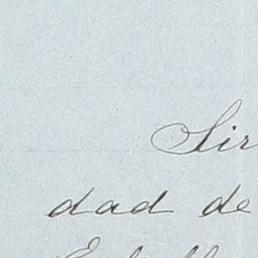 Sir
dad de